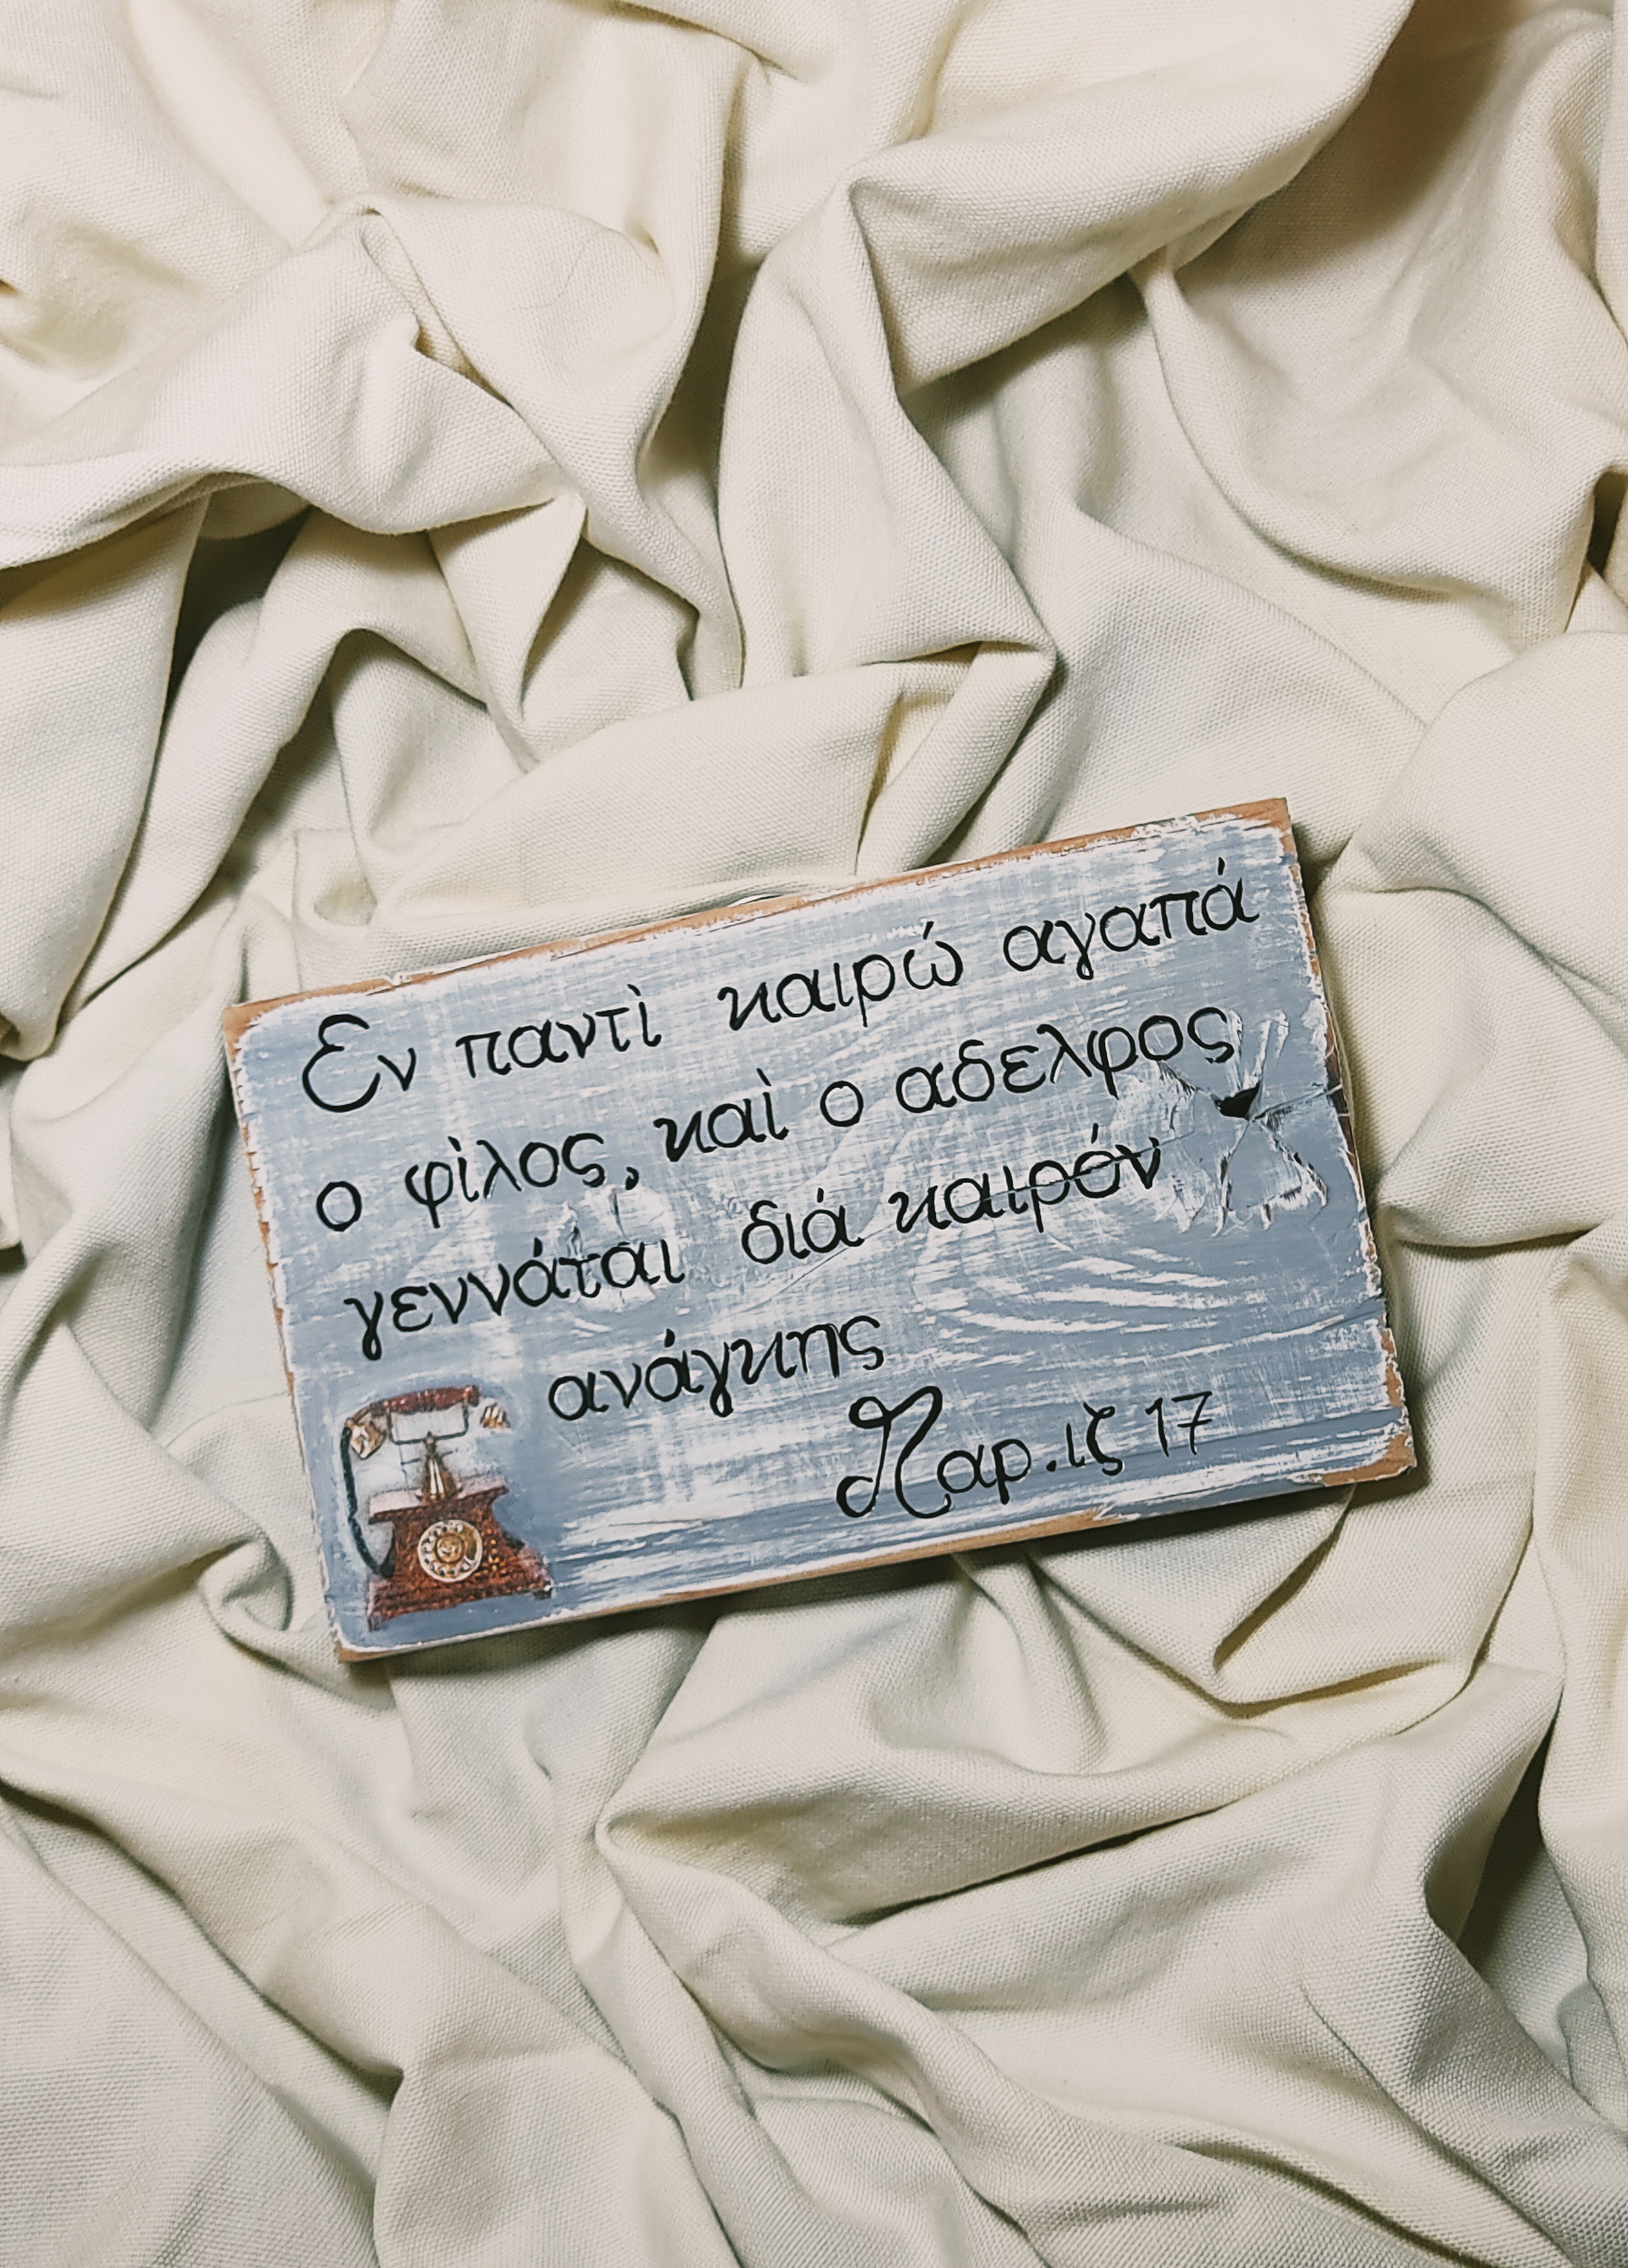 Εν παντὶ καιρώ αγαπά
ο φὶλος, καὶ ο αδελφος
γεννάται διά καιρόν
ανάγκης
Παρ. ιζ 17